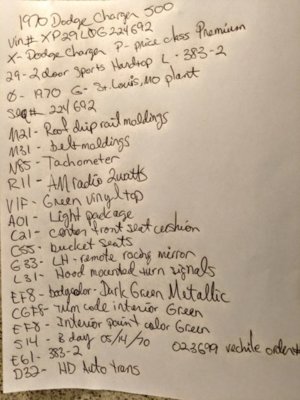 1970 Dodge Charger 500
Vin# XP29L0G224692
X- Dodge Charger P- price class Premium
29- 2 door Sports Hardtop L - 383-2
0- 1970 G- St. Louis, MO plant
Seq# 224692
M21- Roof drip rail moldings
M31- belt moldings
N85- Tachometer
R11- AM radio 2watts
V1F- Green vinyl top
A01- Light package
C21- center front seat cushion
C55- bucket seats
G33- LH-remote racing mirror
L31- Hood mounted turn signals
EF8- body color- Dark Green Metallic
CGF8- trim code interior Green
EF8- Interior paint color Green
514- B day 05/14/70 023699 vechile order#
E61- 383-2
D32- HD Auto trans